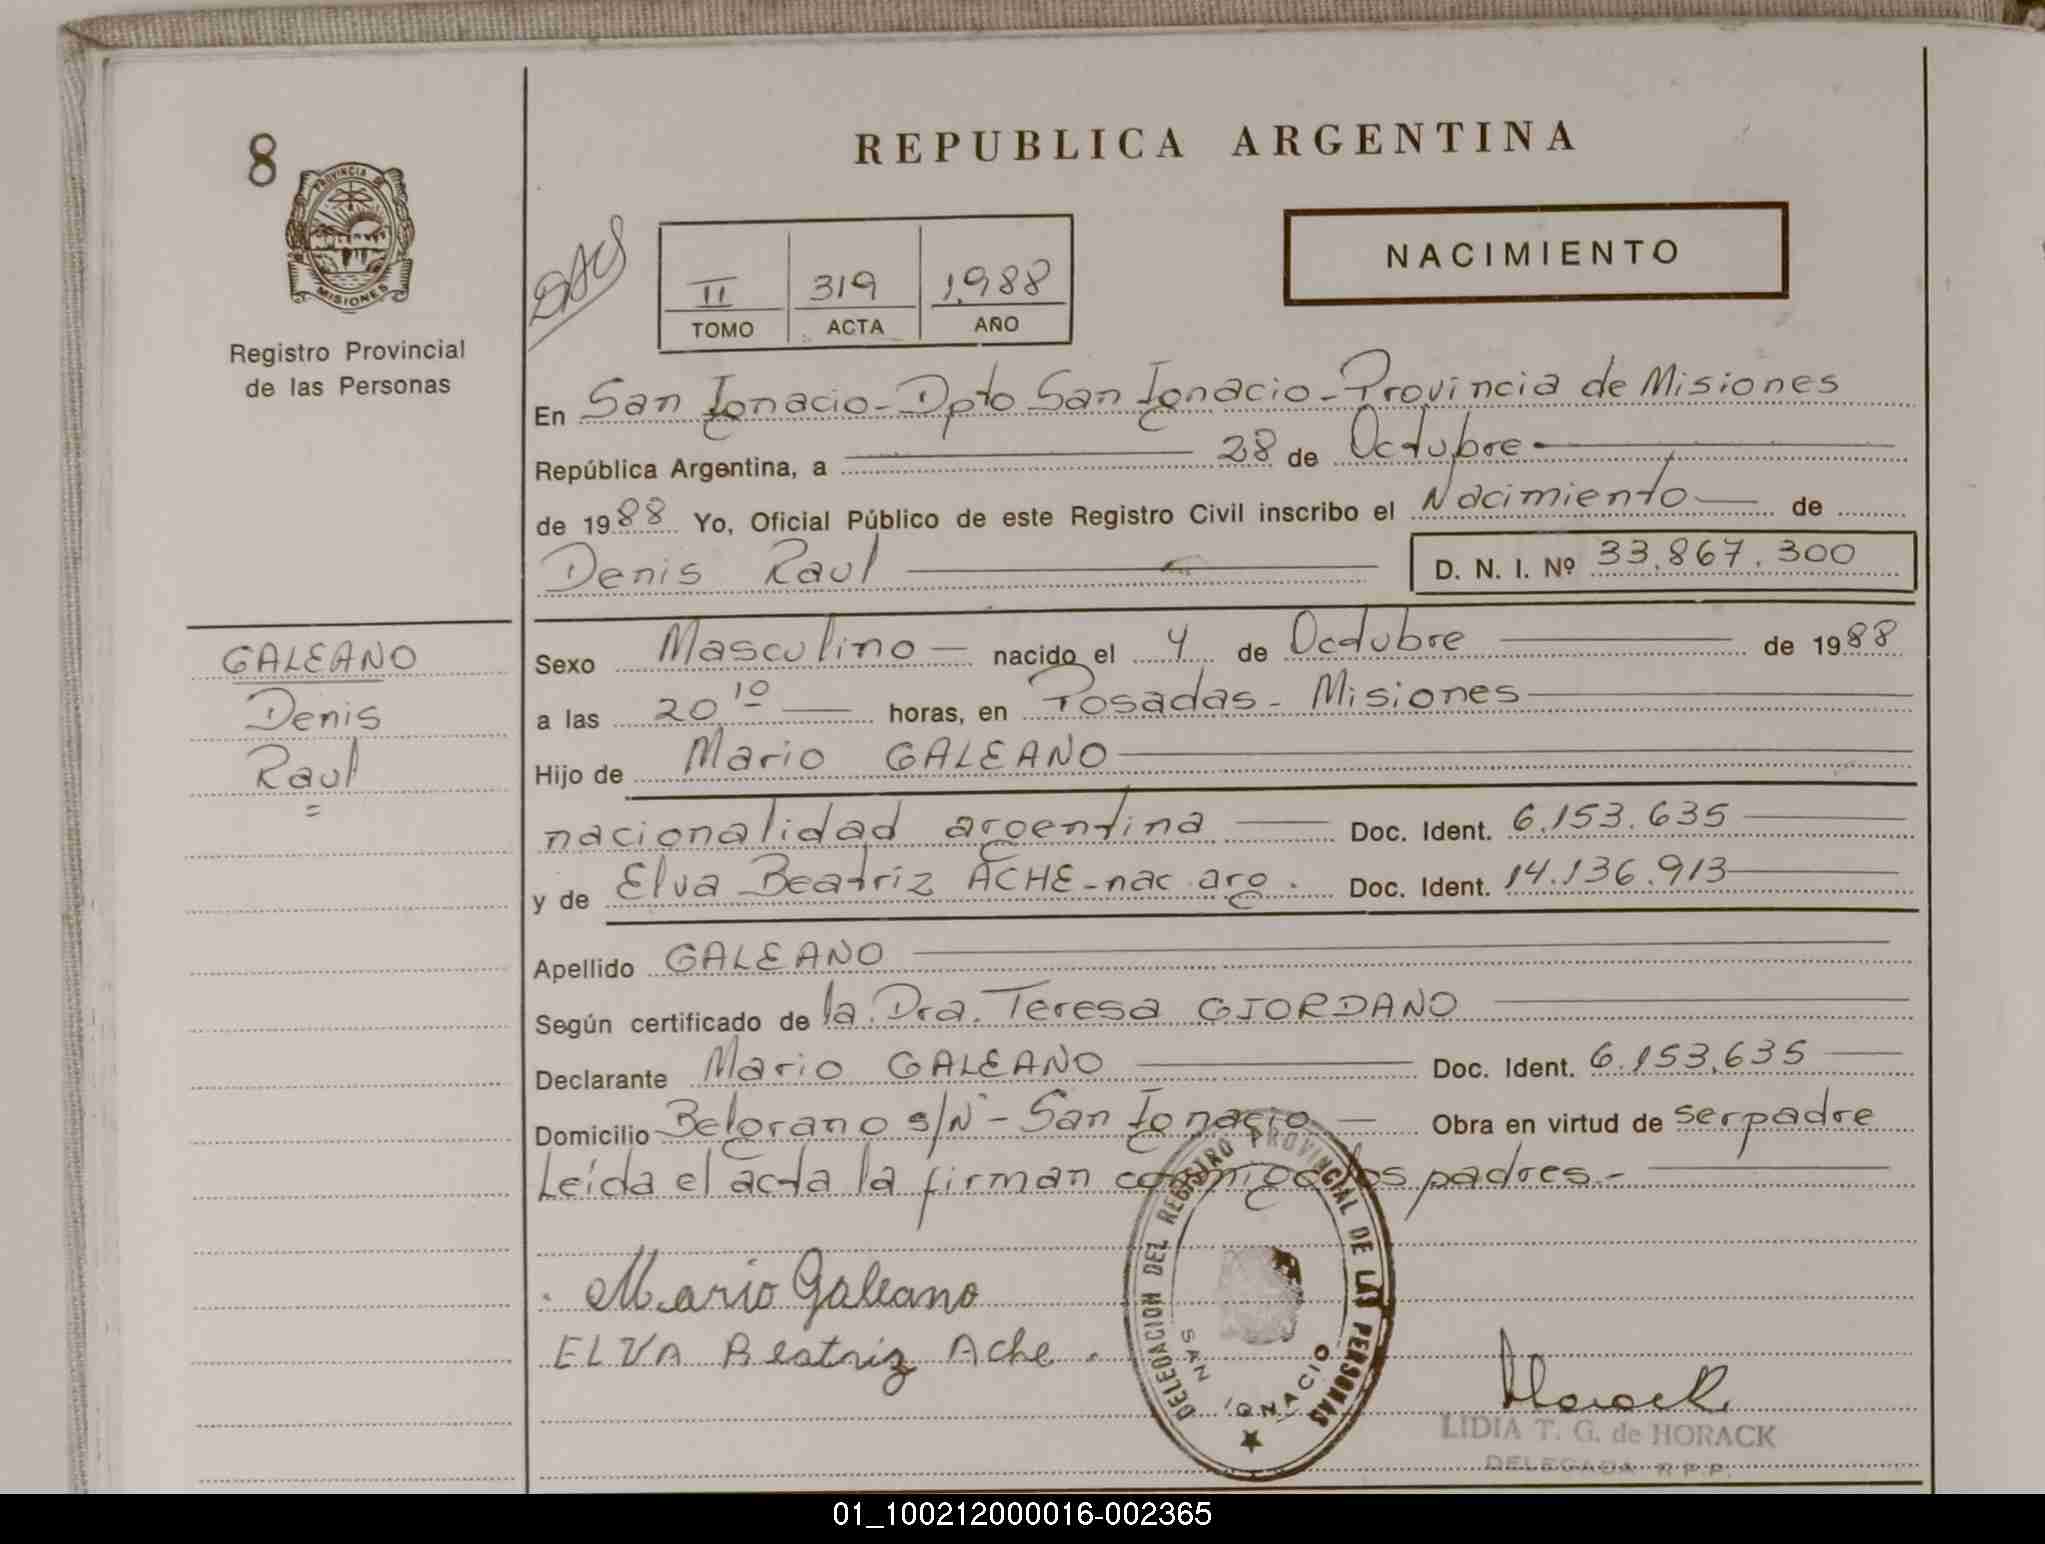 8
PROVINCIA DE
MISIONES
Registro Provincial
de las Personas
GALEANO
Denis
Raul
REPUBLICA ARGENTINA
NACIMIENTO
II 319 1.988
TOMO ACTA AÑO
En San Ignacio - Dpto San Ignacio - Provincia de Misiones
República Argentina, a 28 de Octubre
de 1988 Yo, Oficial Público de este Registro Civil inscribo el Nacimiento de
Denis Raul D. N. I. Nº 33.867.300
Sexo Masculino nacido el 4 de Octubre de 1988
a las 20 10 horas, en Posadas - Misiones
Hijo de Mario GALEANO
nacionalidad argentina Doc. Ident. 6.153.635
y de Elva Beatriz ACHE - nac. arg. Doc. Ident. 14.136.913
Apellido GALEANO
Según certificado de la Dra. Teresa GIORDANO
Declarante Mario GALEANO Doc. Ident. 6.153.635
Domicilio Belgrano s/Nº - San Ignacio Obra en virtud de ser padre
Leída el acta la firman conmigo los padres.-
Mario Galeano
ELVA Beatriz Ache.
DELEGACION DEL REGISTRO PROVINCIAL DE LAS PERSONAS
SAN IGNACIO
Horack
LIDIA T. G. de HORACK
DELEGADA R.P.P.
01_100212000016-002365